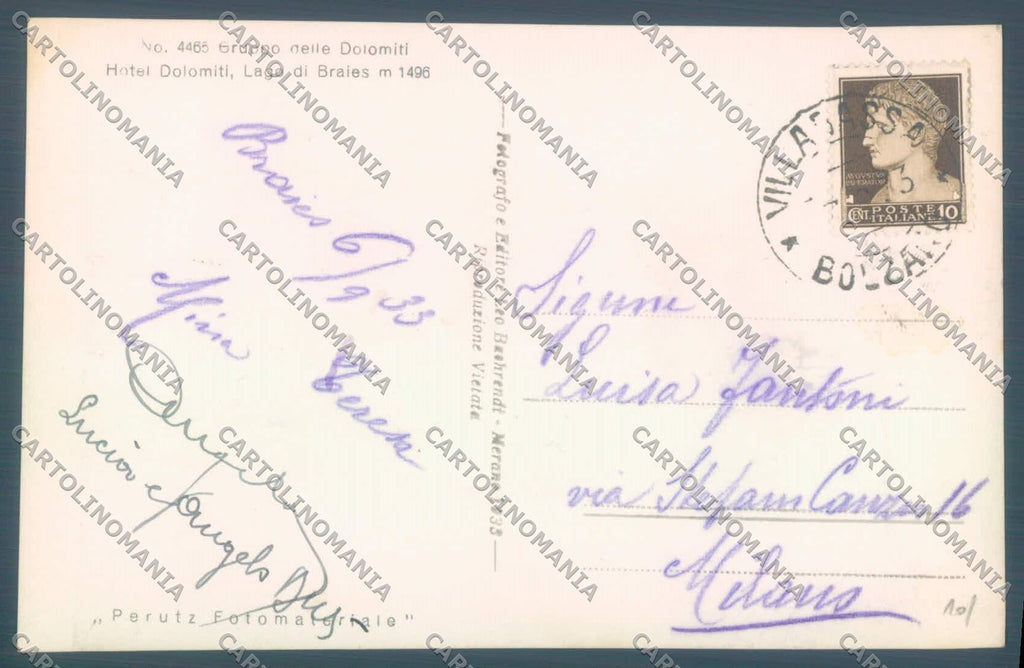 No. 4465 Gruppo delle Dolomiti
Hotel Dolomiti, Lago di Braies m 1496
Braies 6/9 33
Mina
Teresa
Angela
Lucion e Angelo
„Perutz Fotomateriale"
Fotografo e Editore Leo Baehrendt - Merano 1933
Riproduzione Vietata
VILLABASSA
BOLZANO
AUGUSTUS
IMPERATOR
CENT. POSTE ITALIANE 10
Luisa Fantoni
via Stefano Canzio 16
Milano
10/
CARTOLINOMANIA